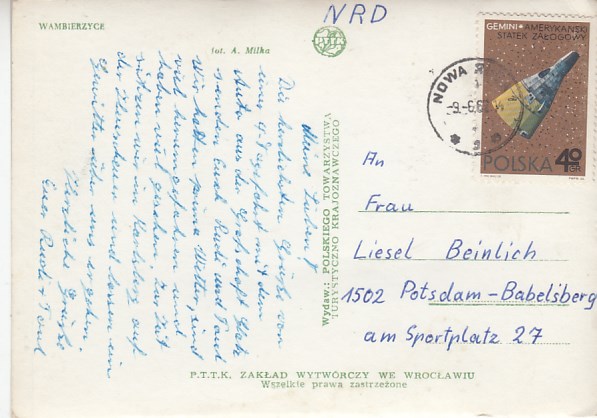 WAMBIERZYCE
fot. A. Milka
NRD
GEMINI • AMERYKAŃSKI
STATEK ZAŁOGOWY
POLSKA 40 GR
NOWA
-9.-6.6
Meine Lieben!
Die herzlichsten Grüße von
einer 4-Tagefahrt mit dem
Auto aus der Grafschaft Glatz
senden Euch Rudi und Paul
Wir hatten prima Wetter, sind
viel herumgefahren und
haben viel gesehen. Zur Zeit
sitzen wir im Karlsberg auf
der Heuscheuer und lassen ein
Gewitter über uns ergehen.
Herzliche Grüße
Euer Rudi + Paul
Wydaw.: POLSKIEGO TOWARZYSTWA
TURYSTYCZNO KRAJOZNAWCZEGO
An
Frau
Liesel Beinlich
1502 Potsdam-Babelsberg
am Sportplatz 27
P.T.T.K. ZAKŁAD WYTWÓRCZY WE WROCŁAWIU
Wszelkie prawa zastrzeżone